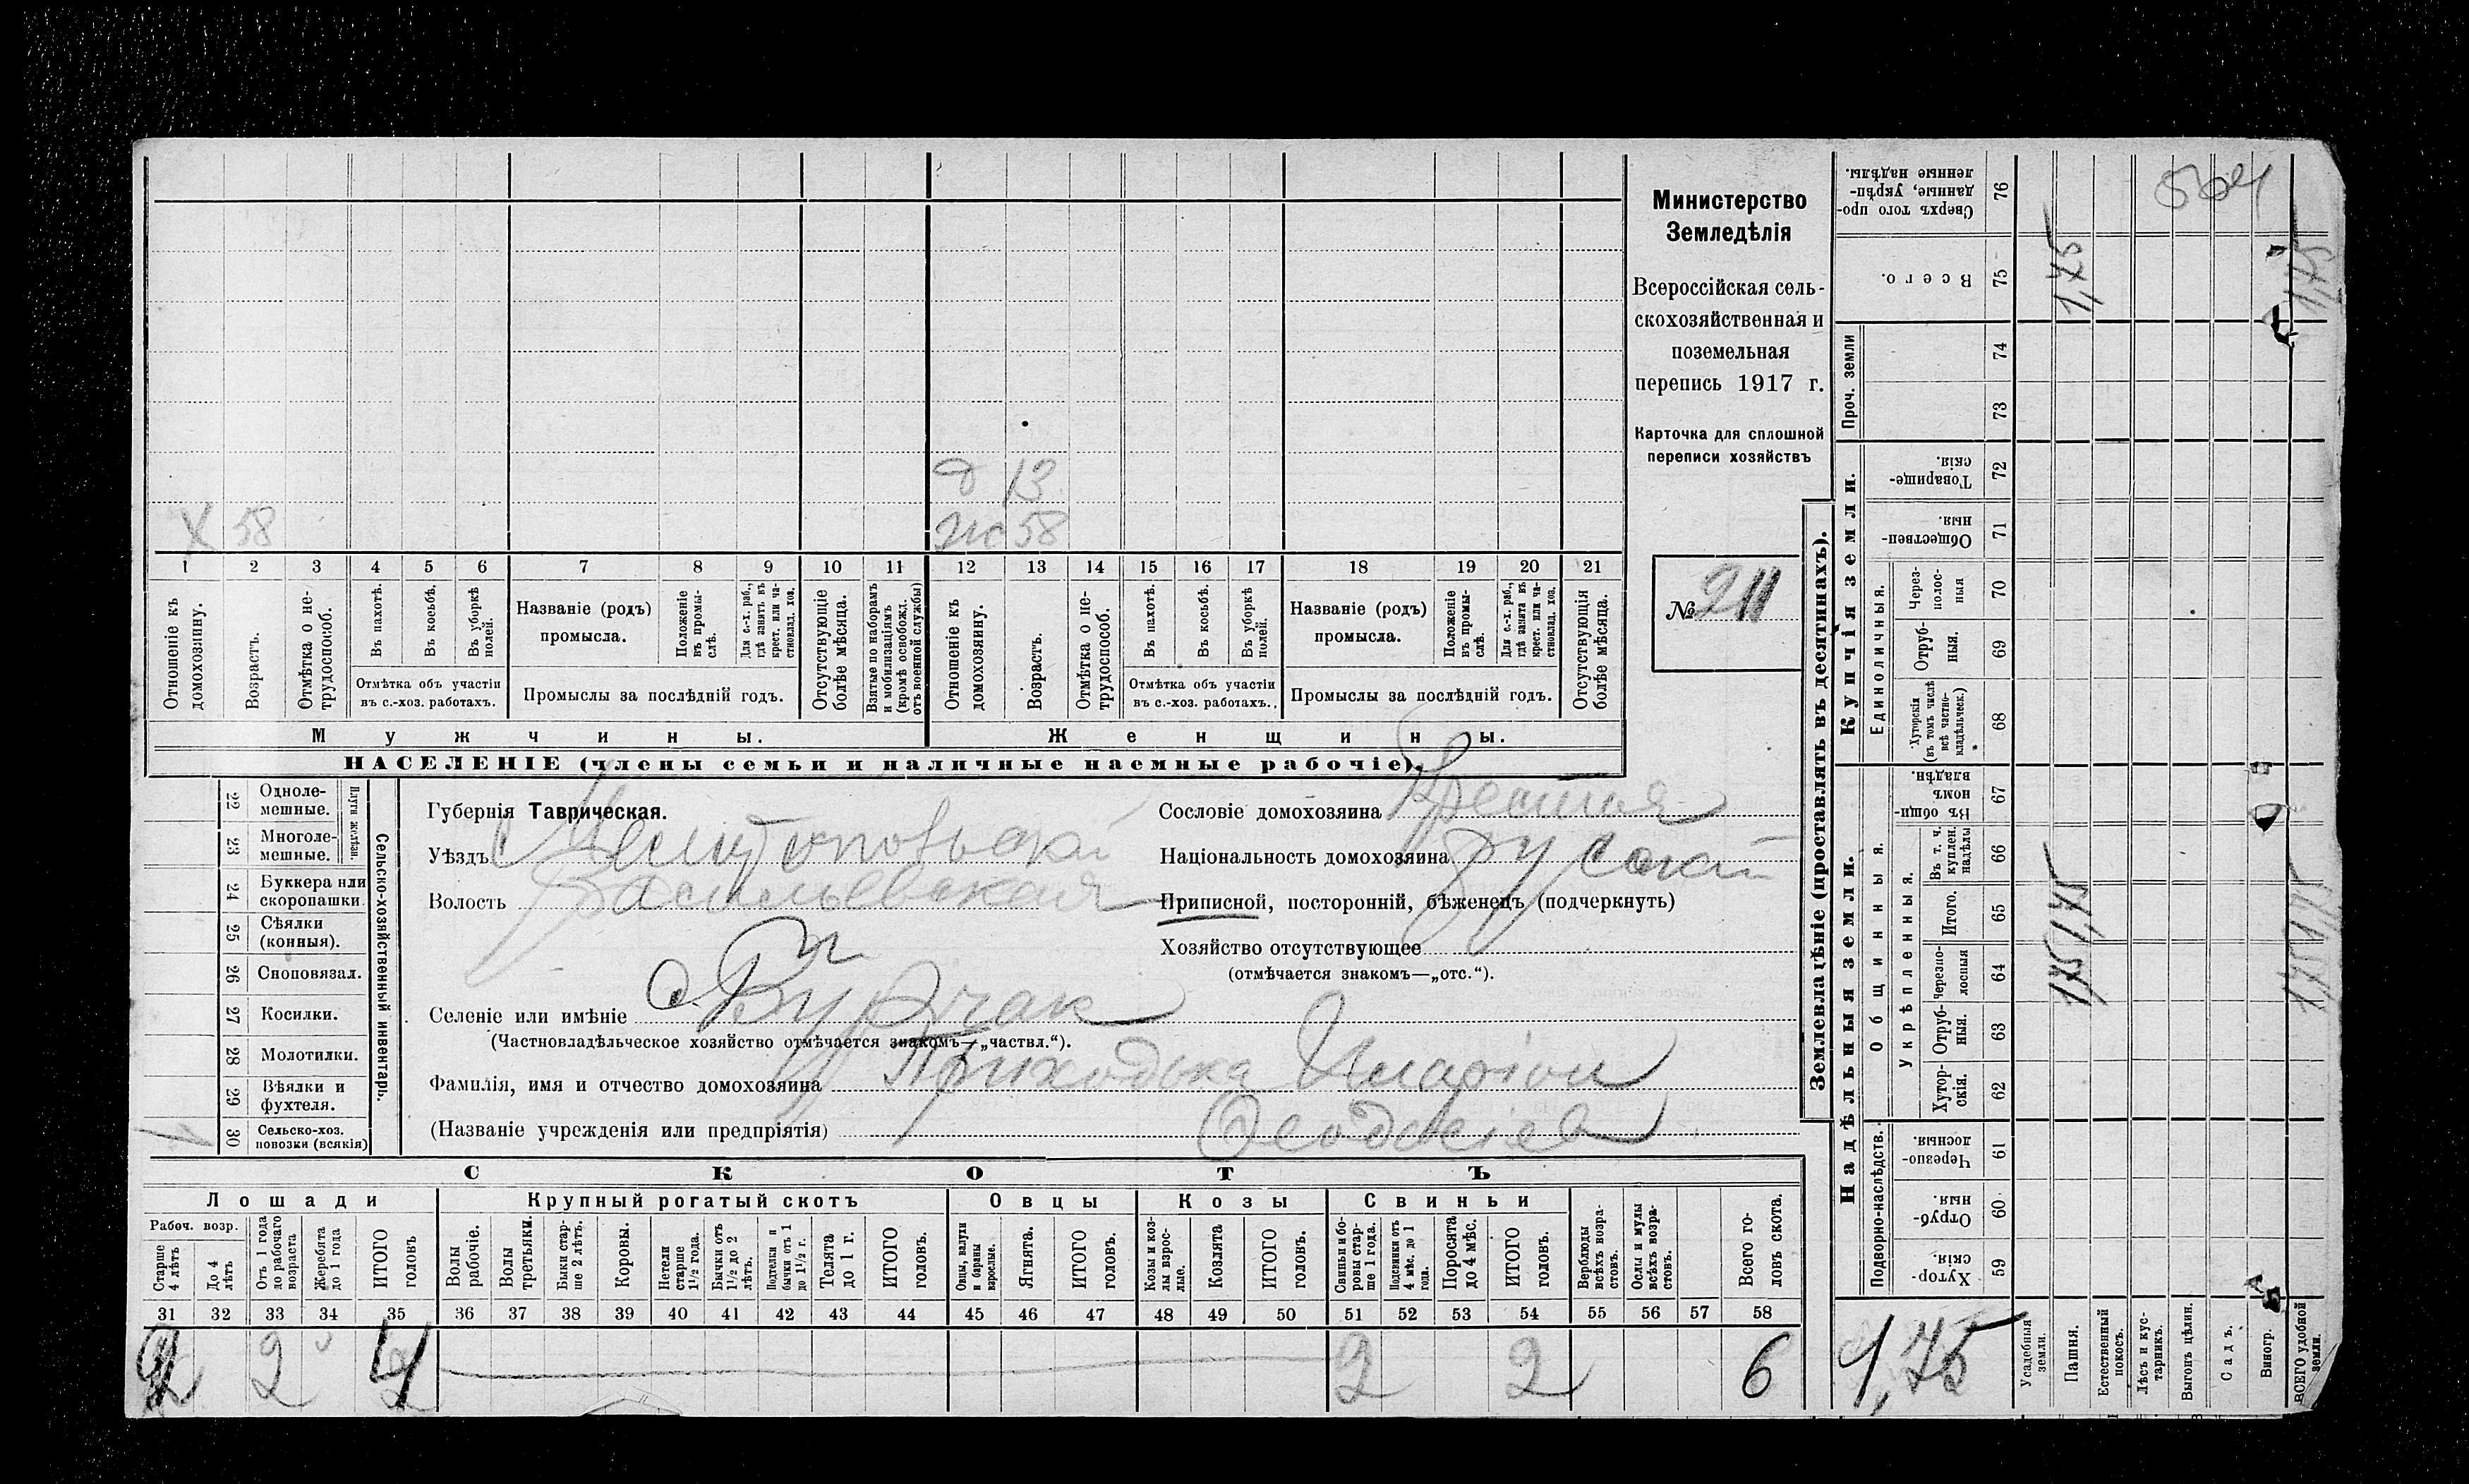 Министерство
Земледѣлія
Всероссійская сель-
скохозяйственная и
поземельная
перепись 1917 г.
Карточка для сплошной
переписи хозяйствъ
№ 211
д 13
х 58
ж 58
1 2 3 4 5 6 7 8 9 10 11 12 13 14 15 16 17 18 19 20 21
Отношеніе къ домохозяину.
Возрастъ.
Отмѣтка о не-трудоспособ.
Въ пахотѣ.
Въ косьбѣ.
Въ уборкѣ полей.
Отмѣтка объ участіи
въ с.-хоз. работахъ.
Названіе (родъ)
промысла.
Положеніе въ промы-слѣ.
Для с.-х. раб., гдѣ занятъ въ крест. или ча-стновлад. хоз.
Промыслы за послѣдній годъ.
Отсутствующіе болѣе мѣсяца.
Взятые по наборамъ и мобилизаціямъ (кромѣ освобожд. отъ военной службы)
Отношеніе къ домохозяину.
Возрастъ.
Отмѣтка о не-трудоспособ.
Въ пахотѣ.
Въ косьбѣ.
Въ уборкѣ полей.
Отмѣтка объ участіи
въ с.-хоз. работахъ.
Названіе (родъ)
промысла.
Положеніе въ промы-слѣ.
Для с.-х. раб., гдѣ занята въ крест. или ча-стновлад. хоз.
Промыслы за послѣдній годъ.
Отсутствующія болѣе мѣсяца.
Мужчины.
Женщины.
НАСЕЛЕНІЕ (члены семьи и наличные наемные рабочіе).
22 Одноле-мешные.
23 Многоле-мешные.
Плуги желѣзн.
24 Буккера или скоропашки.
25 Сѣялки (конныя).
26 Сноповязал.
27 Косилки.
28 Молотилки.
29 Вѣялки и фухтеля.
30 Сельско-хоз. повозки (всякія)
1
Сельско-хозяйственный инвентарь.
Губернія Таврическая.
Уѣздъ Мелитопольскій
Волость Васильевская
Селеніе или имѣніе с. Бурчак
(Частновладѣльческое хозяйство отмѣчается знакомъ—„частвл.“).
Фамилія, имя и отчество домохозяина Приходька Иларіон
(Названіе учрежденія или предпріятія) Феодосіев
Сословіе домохозяина Крестья
Національность домохозяина Русскій
Приписной, посторонній, бѣженецъ (подчеркнуть)
Хозяйство отсутствующее
(отмѣчается знакомъ—„отс.“).
СКОТЪ
Лошади
Крупный рогатый скотъ
Овцы
Козы
Свиньи
Рабоч. возр.
Старше 4 лѣтъ
До 4 лѣтъ
Отъ 1 года до рабочаго возраста
Жеребята до 1 года
ИТОГО головъ
Волы рабочіе.
Волы третьяки.
Быки стар-ше 2 лѣтъ.
Коровы.
Нетели старше 1½ года.
Бычки отъ 1½ до 2 лѣтъ.
Подтелки и бычки отъ 1 до 1½ г.
Телята до 1 г.
ИТОГО головъ.
Овцы, валухи и бараны взрослые.
Ягнята.
ИТОГО головъ.
Козы и коз-лы взрос-лые.
Козлята
ИТОГО головъ.
Свиньи и бо-ровы стар-ше 1 года.
Подсвинки отъ 4 мѣс. до 1 года.
Поросята до 4 мѣс.
ИТОГО головъ.
Верблюды всѣхъ возра-стовъ.
Ослы и мулы всѣхъ возра-стовъ.
Всего го-ловъ скота.
31 32 33 34 35 36 37 38 39 40 41 42 43 44 45 46 47 48 49 50 51 52 53 54 55 56 57 58
2 2 4 2 2 6
Землевладѣніе (проставлять въ десятинахъ).
Надѣльныя земли.
Купчія земли.
Проч. земли
Подворно-наслѣдств.
Общинныя.
Укрѣпленныя.
Единоличныя.
Сверхъ того про-данные, укрѣп-ленные надѣлы. 76
Всего. 75
74
73
Товарище-скія. 72
Обществен-ныя. 71
Через-полос-ныя 70
Отруб-ныя. 69
Хуторскія (въ томъ числѣ всѣ частно-владѣльческ.) 68
Въ общи-номъ владѣн. 67
Въ т. ч. куплен. надѣлы 66
Итого. 65
Черезпо-лосныя 64
Отруб-ныя. 63
Хутор-скія. 62
Черезпо-лосныя. 61
Отруб-ныя. 60
Хутор-скія. 59
1,75
1,75
1,75 1,75
1,75
1,75 1,75
Усадебныя земли.
Пашня.
Естественный покосъ.
Лѣсъ и кус-тарникъ.
Выгонъ цѣлин.
Садъ.
Виногр.
ВСЕГО удобной земли.